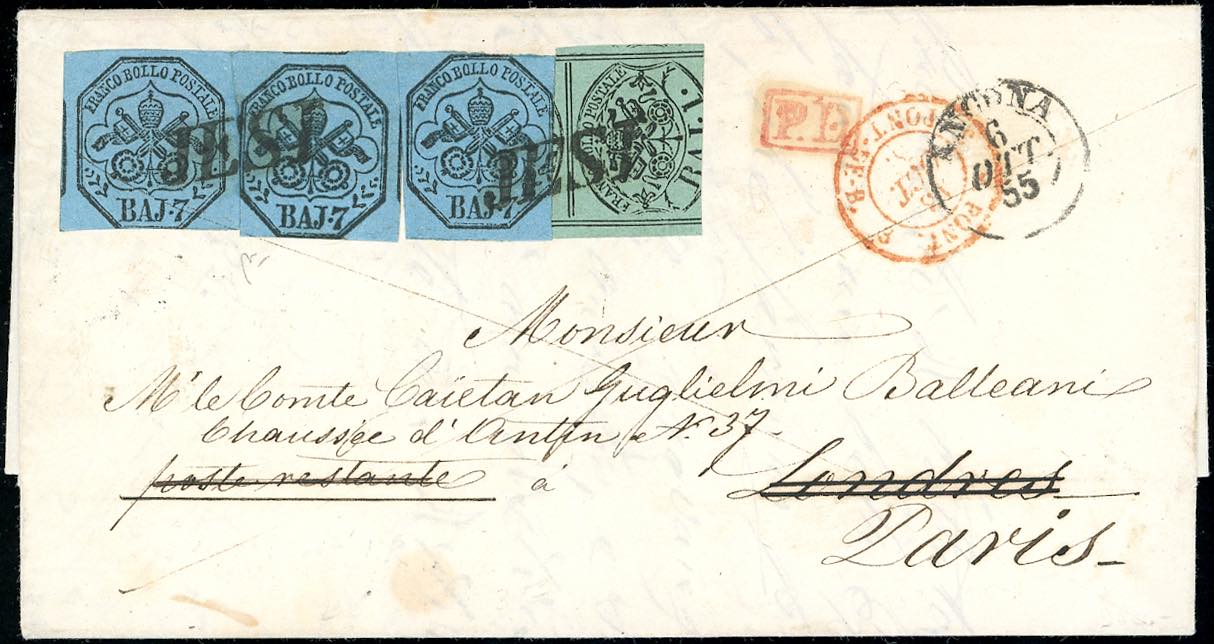 FRANCO BOLLO POSTALE
BAJ·7
FRANCO BOLLO POSTALE
BAJ·7
FRANCO BOLLO POSTALE
BAJ·7
BAJ. 1.
JESI
JESI
P.D.
PONT.
ANCONA
6
OTT
55
Monsieur
Mr le Comte Caïetan Guglielmi Balleani
Chaussée d'Antin No. 37
poste restante à Londres
Paris